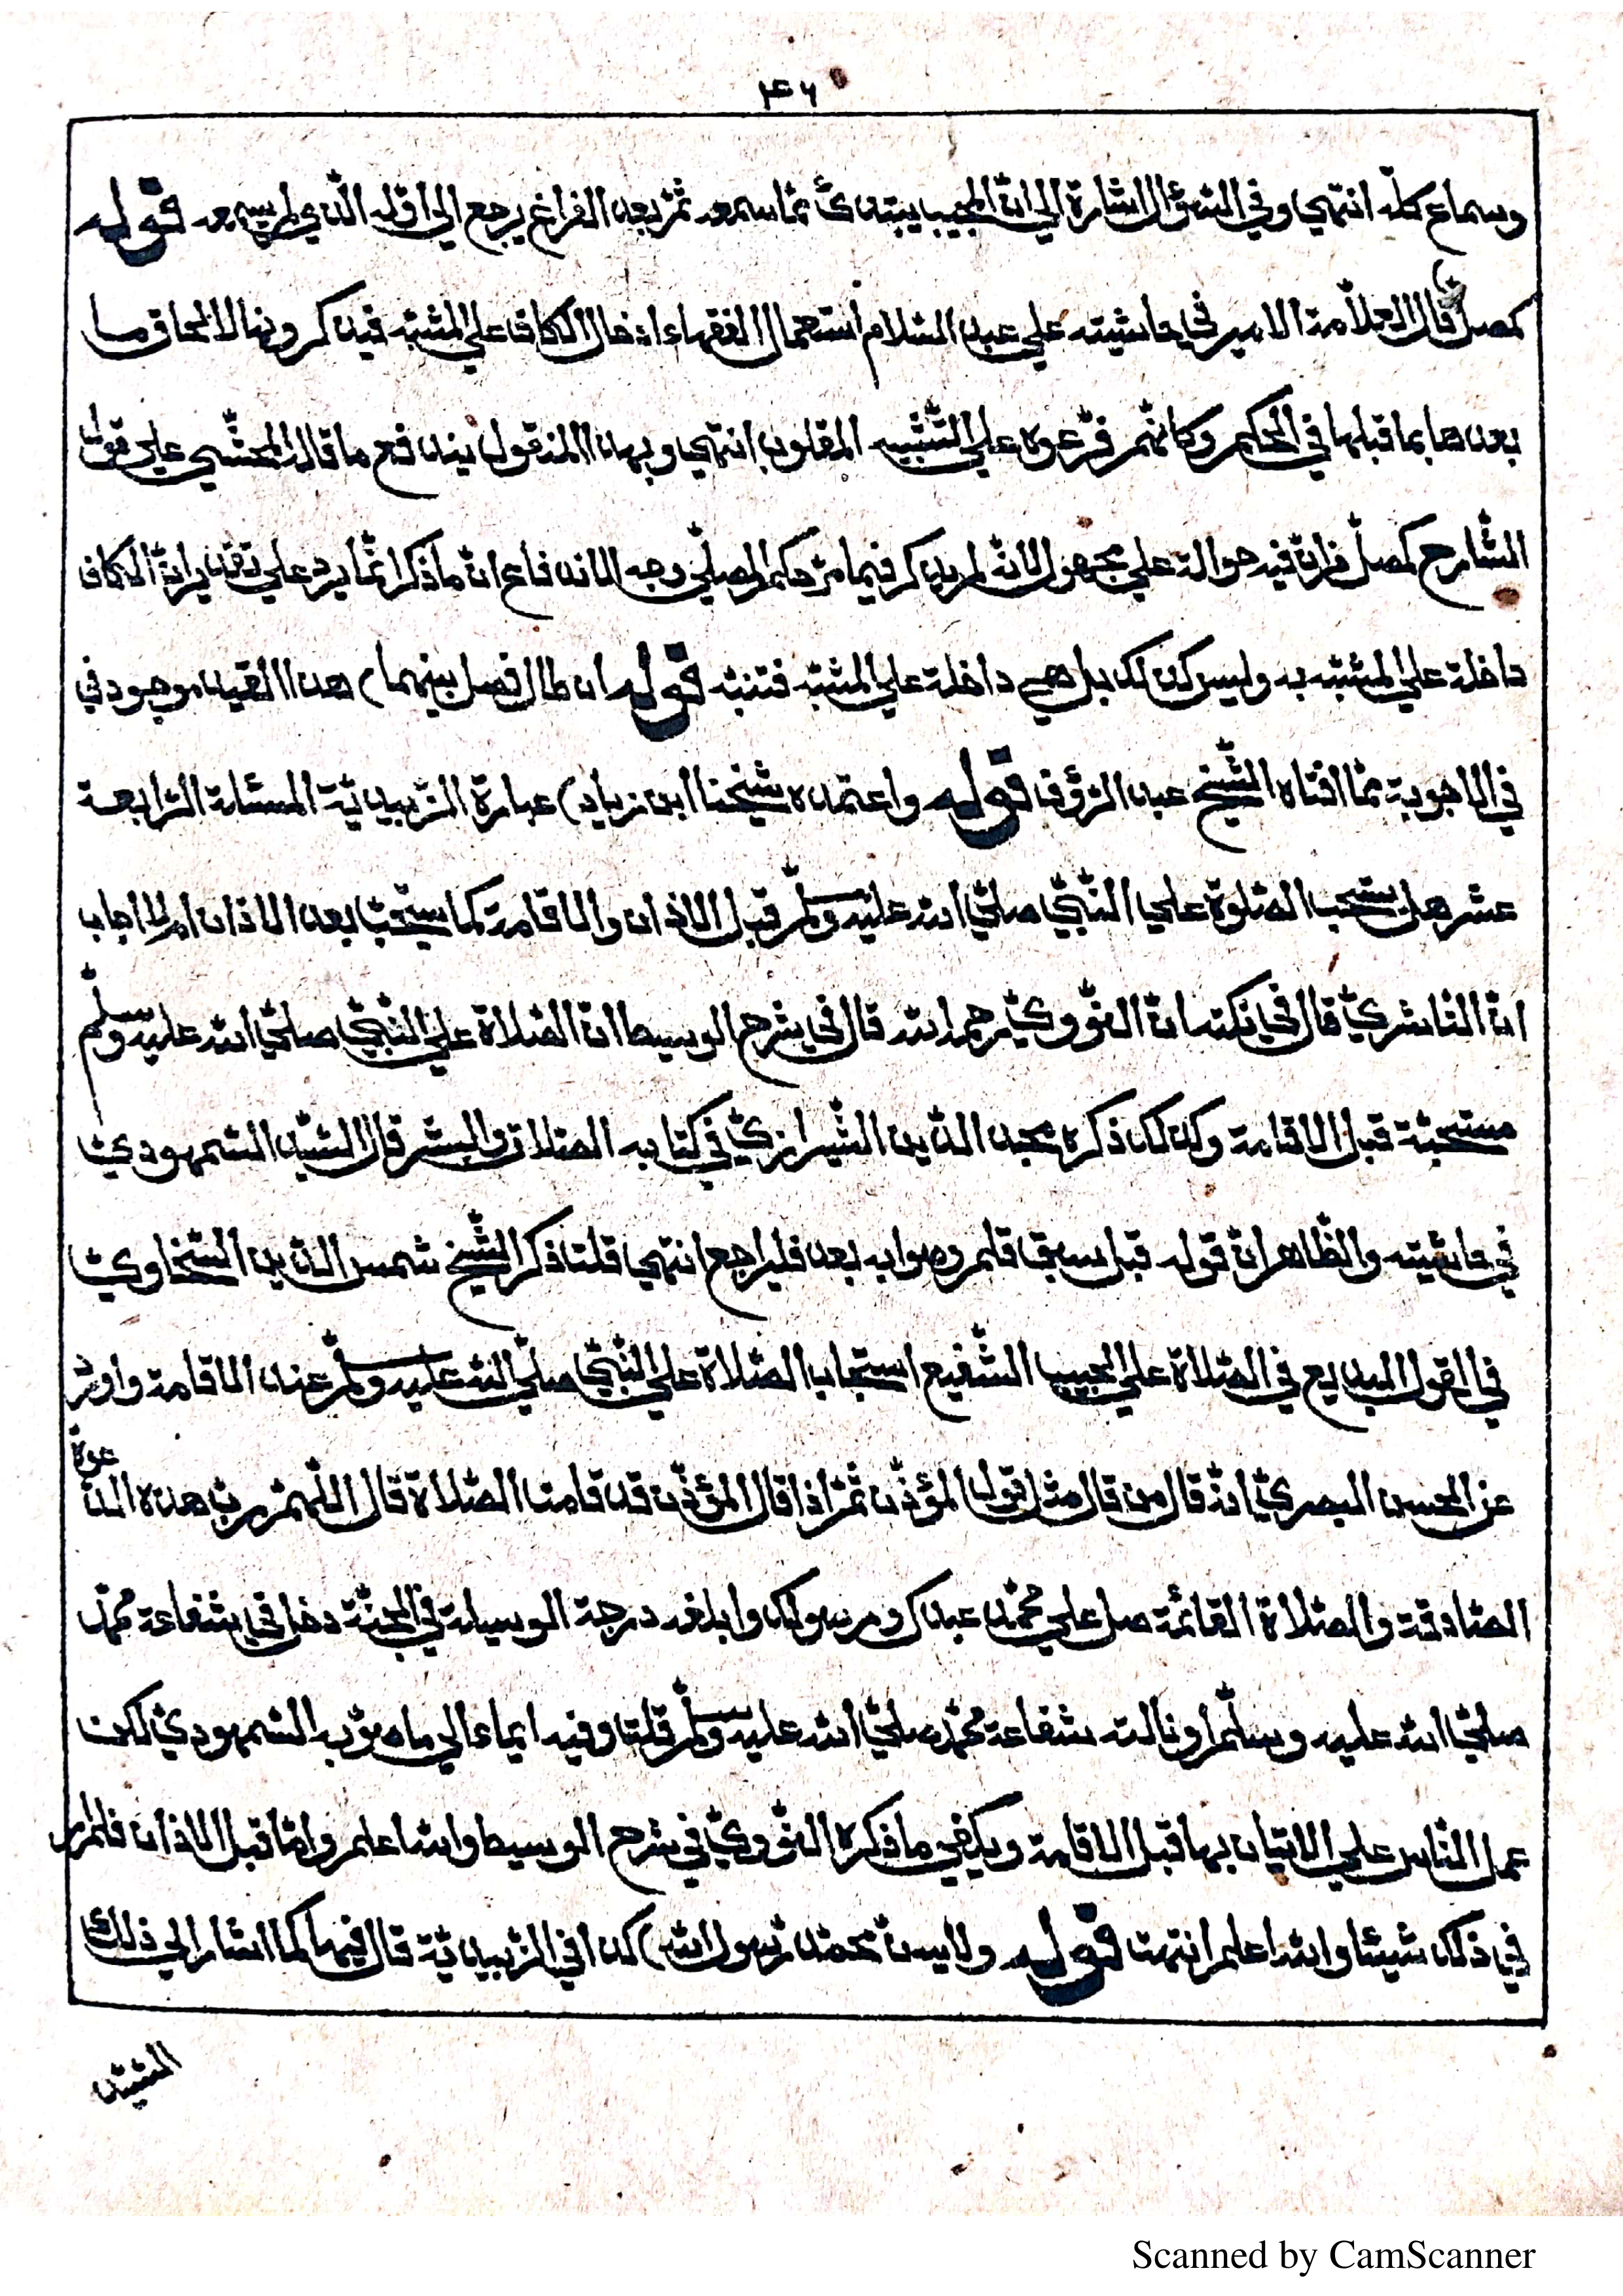 ٤٦
وسماع كلّه انتهي وفي السّؤال اشارة الي انّ المجيب يبتدئ ممّا سمعه ثمّ بعد الفراغ يرجع الي اوّله الّذي لم يسمعه قوله
كمصلّ) قال العلّامة الامير في حاشيته علي عبد السّلام استعمال الفقهاء ادخال الكاف علي المشبّه فيذكرونها لالحاق ما
بعدها بما قبلها في الحكم وكانّهم فرّعوه علي التّشبيه المقلوب انتهي وبهذا المنقول يندفع ما قاله المحشّي علي قول
الشّارح كمصلّ فانّ فيه حوالة علي مجهول لانّه لم يذكر فيما مرّ حكم المصلّي وجه الاندفاع انّ ما ذكر انّما يرد علي تقدير انّ الكاف
داخلة علي المشبّه به وليس كذلك بل هي داخلة علي المشبّه فتنبّه قوله ان طال فصل بينهما) هذا القيد موجود في
في الاجوبة ممّا افتاه الشّيخ عبد الرّؤف قوله واعتمده شيخنا ابن زياد) عبارة الزّبيديّة المسئلة الرّابعة
عشر هل يستحب الصّلوة علي النّبيّ صلّي الله عليه وسلّم قبل الاذان والاقامة كما يستحبّ بعد الاذان ام لا اجاب
انّ النّاشريّ قال في نكته انّ النّوويّ رحمه الله قال في شرح الوسيط انّ الصّلاة علي النّبيّ صلّي الله عليه وسلّم
مستحبّة قبل الاقامة وكذلك ذكره مجد الدّين الشّيرازيّ في كتابه الصّلات والبشر قال السّيّد السّمهوديّ
في حاشيته والظّاهر انّ قوله قبل سبق قلم وصوابه بعد فليراجع انتهي قلت ذكر الشّيخ شمس الدّين السّخاويّ
في القول البديع في الصّلاة علي الحبيب الشّفيع استحباب الصّلاة علي النّبيّ صلّي الله عليه وسلّم عند الاقامة واورد
عن الحسن البصريّ انّه قال من قال مثل قول المؤذّن ثمّ اذا قال المؤذّن قد قامت الصّلاة قال اللّهمّ ربّ هذه الدّعوة
الصّادقة والصّلاة القائمة صل علي محمّد عبدك ورسولك وابلغه درجة الوسيلة في الجنّة دخل في شفاعة محمّد
صلّي الله عليه وسلّم او نالته شفاعة محمّد صلّي الله عليه وسلّم قلت وفيه ايماء الي ما صوّبه السّمهوديّ لكن
عمل النّاس علي الاتيان بها قبل الاقامة ويكفي ما ذكره النّوويّ في شرح الوسيط والله اعلم وامّا قبل الاذان فلم ار
في ذلك شيئا والله اعلم انتهت قوله ولا يسنّ محمّد رّسول الله) كذا في الزّبيديّة قال فيها كما اشار الي ذلك
السّيّد
Scanned by CamScanner